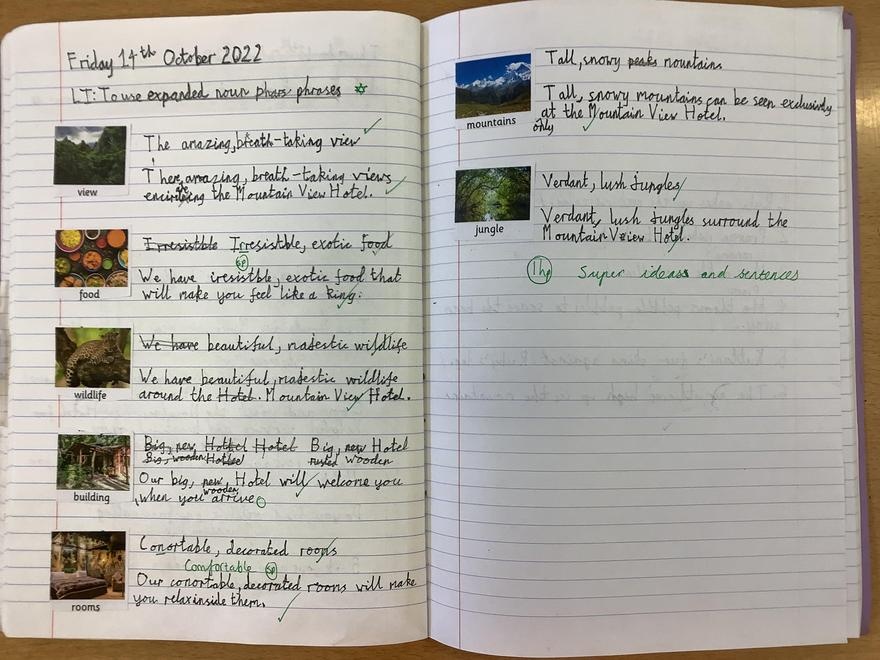 Friday 14th October 2022
LT: To use expanded noun phars phrases
view
The amazing, breath-taking view
There, amazing, breath-taking views
are
encircling the Mountain View Hotel.
food
Irresistible Irresistble, exotic food
sp
We have iresistble, exotic food that
will make you feel like a king.
wildlife
We have beautiful, majestic wildlife
We have beautiful, majestic wildlife
around the Hotel. Mountain View Hotel.
building
Big, new Hottel Hotel Big, new Hotel
Big, wooden Hottel rusted wooden
Our big, new, Hotel will welcome you
wooden
when you arrive
rooms
Conortable, decorated rooms
Comfortable sp
Our conortable, decorated rooms will make
you relax inside them.
mountains
Tall, snowy peaks mountains
Tall, snowy mountains can be seen exclusively
at the Mountain View Hotel.
only
jungle
Verdant, lush jungles
Verdant, lush jungles surround the
Mountain View Hotel.
1hp Super ideas and sentences